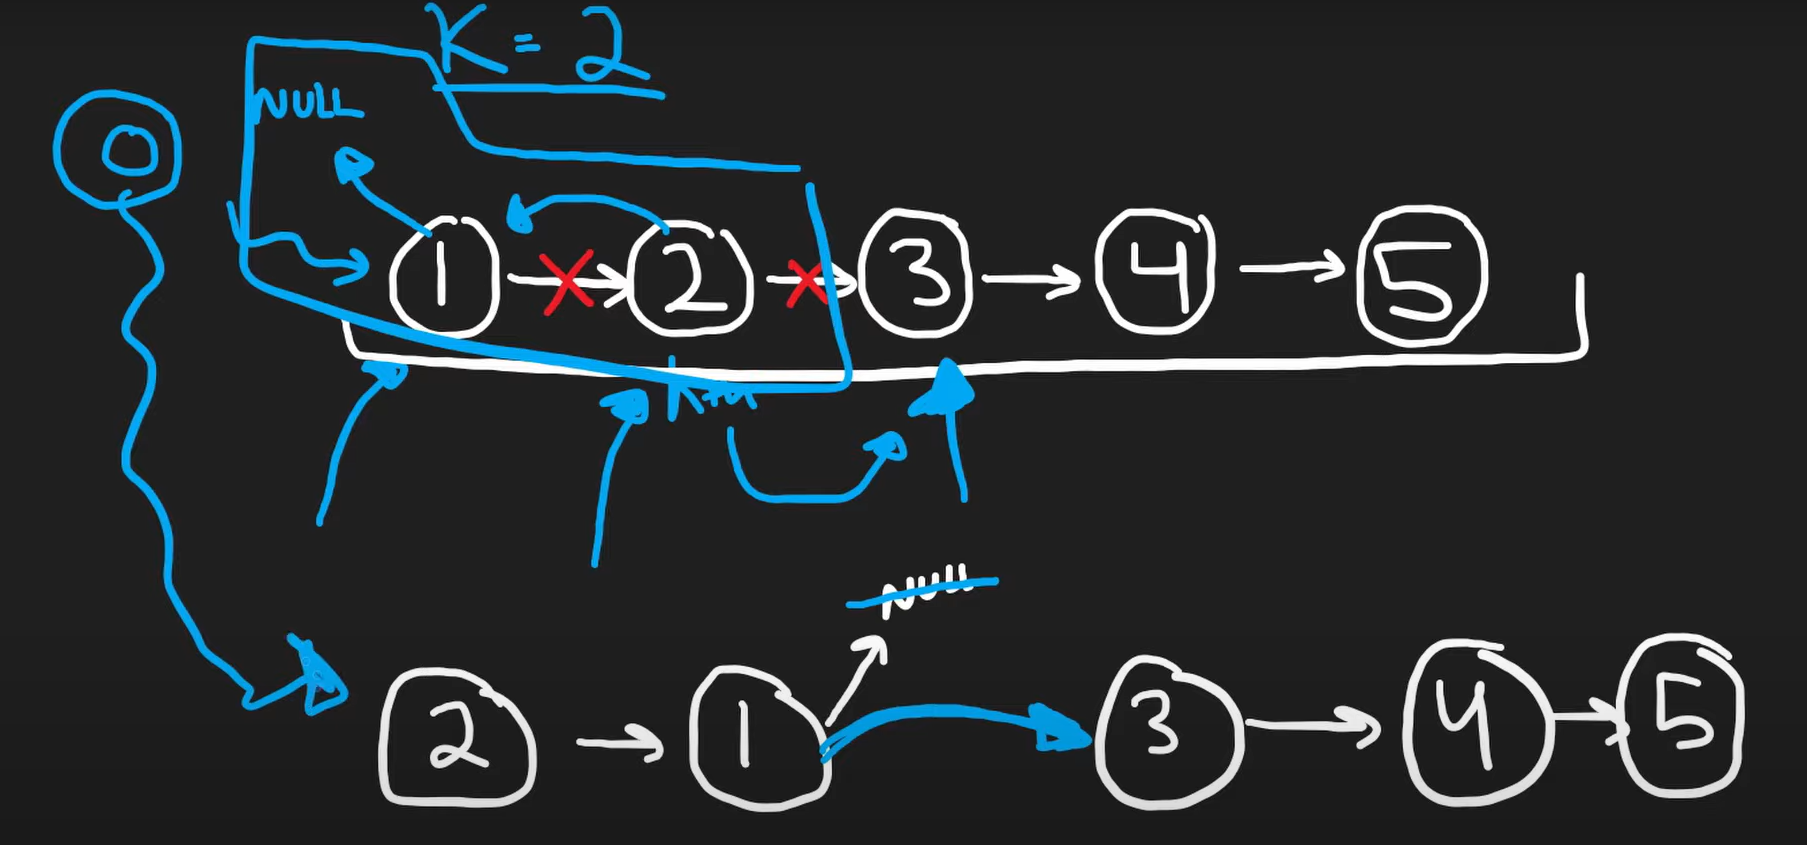 K = 2
NULL
0
1 2 3 4 5
Kth
NULL
2 1 3 4 5